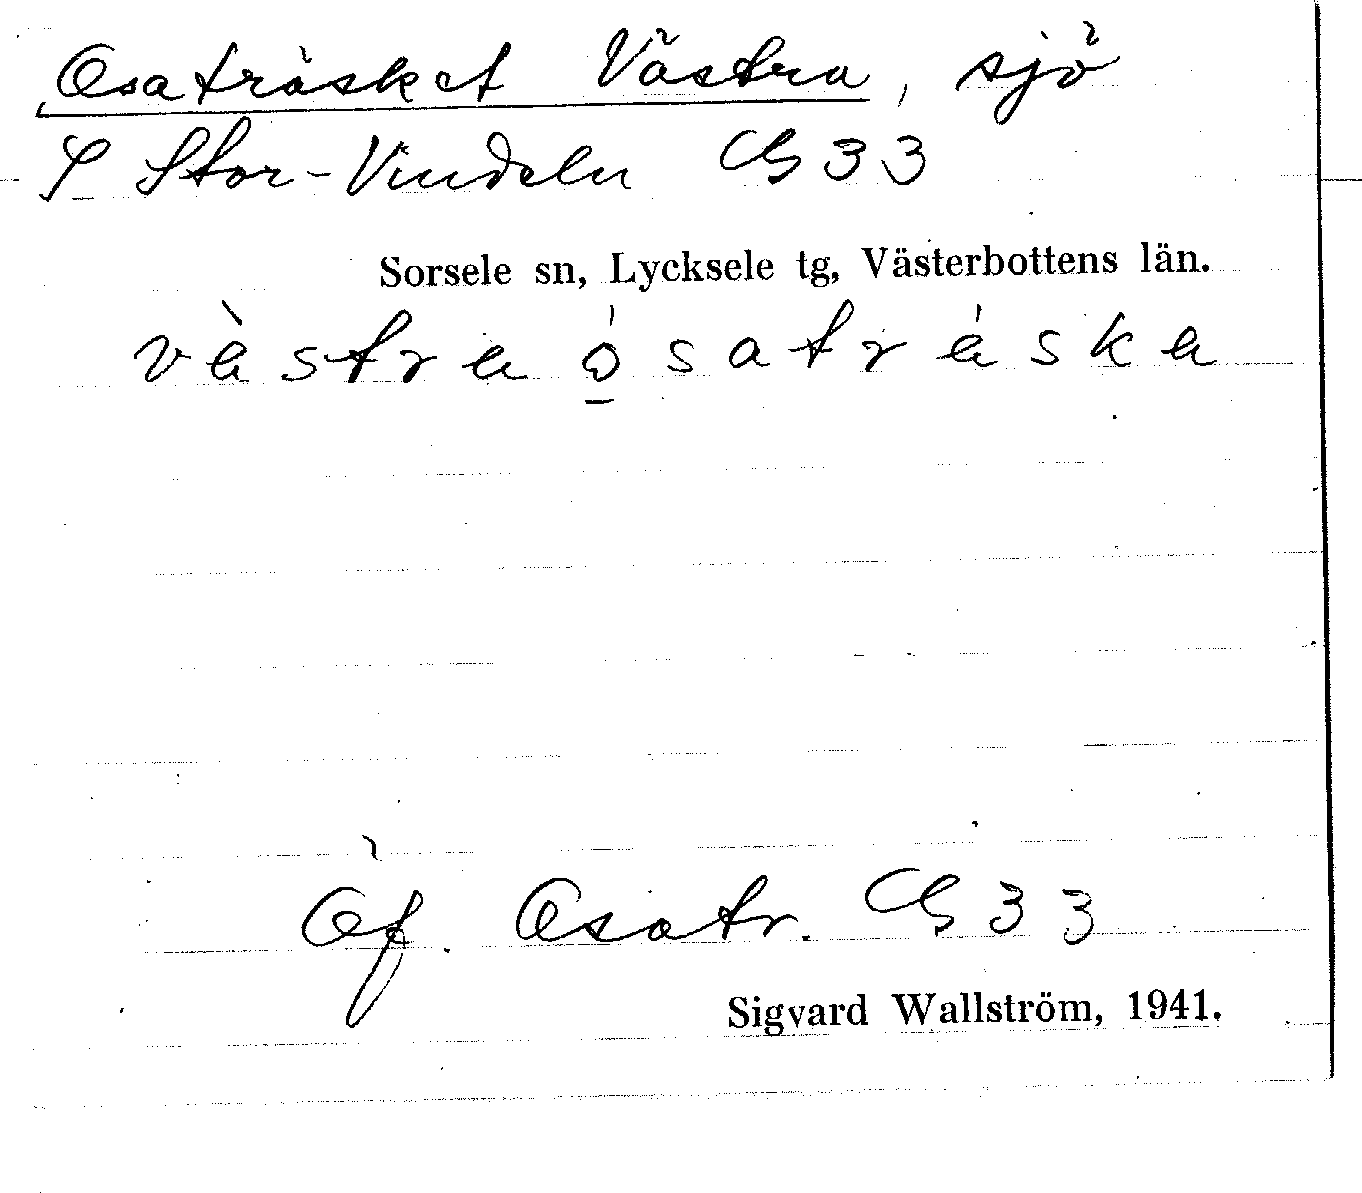 Osaträsket Västra, sjö
S Stor-Vindeln C6 33
Sorsele sn, Lycksele tg, Västerbottens län.
västra o̲satráska
Öf. Osatr. C6 33
Sigvard Wallström, 1941.